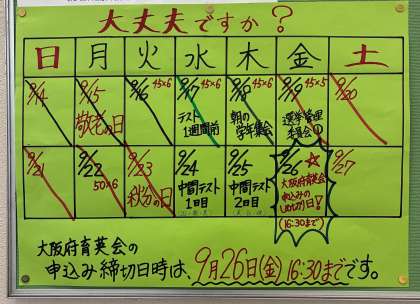 大丈夫ですか?
日 月 火 水 木 金 土
9/14 9/15 9/16 45×6 9/17 45×6 9/18 45×6 9/19 45×5 9/20
敬老の日
テスト
1週間前
朝の
学年集会
選挙管理
委員会①
9/21 9/22 9/23 9/24 9/25 9/26 9/27
50×6
秋分の日
中間テスト
1日目
中間テスト
2日目
大阪府育英会
申込みの
しめ切り日!
(16:30まで)
大阪府育英会の
申込み締切日時は、9月26日(金)16:30までです。